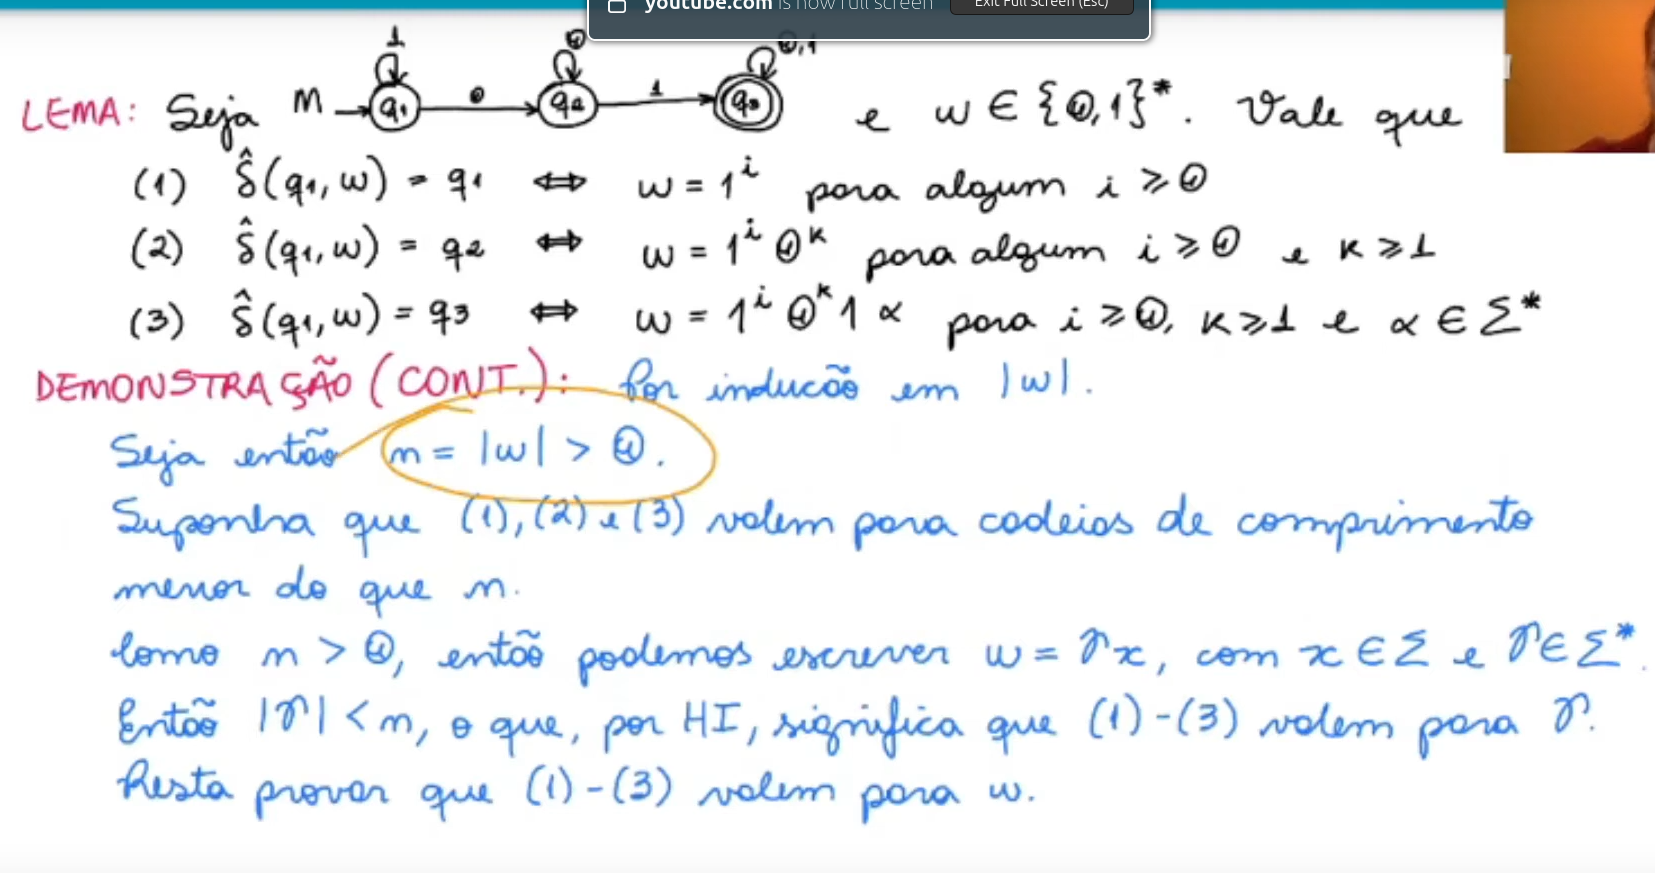 youtube.com is now full screen Exit Full Screen (Esc)
1 0 0,1
LEMA: Seja M q1 0 q2 1 q3 e w ∈ {0,1}*. Vale que
(1) δ̂(q1,w) = q1 ⇔ w = 1^i para algum i ≥ 0
(2) δ̂(q1,w) = q2 ⇔ w = 1^i 0^k para algum i ≥ 0 e k ≥ 1
(3) δ̂(q1,w) = q3 ⇔ w = 1^i 0^k 1 α para i ≥ 0, k ≥ 1 e α ∈ Σ*
DEMONSTRAÇÃO (CONT.): Por inducão em |w|.
Seja então n = |w| > 0.
Suponha que (1), (2) e (3) valem para cadeias de comprimento
menor do que n.
Como n > 0, então podemos escrever w = γx, com x ∈ Σ e γ ∈ Σ*.
Então |γ| < n, o que, por HI, significa que (1)-(3) valem para γ.
Resta provar que (1)-(3) valem para w.